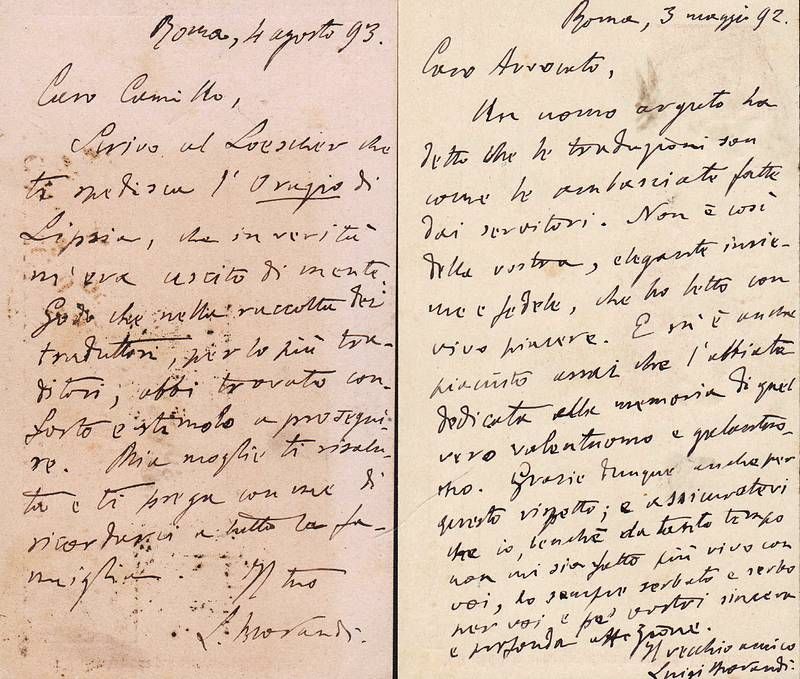 Roma, 4 agosto 93.
Caro Camillo,
Scrivo al Loescher che
ti spedisca l'Orazio di
Lipsia, che in verità
m'era uscito di mente.
Godo che nella raccolta dei
traduttori, per lo più tra-
ditori, abbi trovato con-
forto e stimolo a prosegui-
re. Mia moglie ti risalu-
ta e ti prega con me di
ricordarci a tutta la fa-
miglia. Il tuo
L. Morandi.
Roma, 3 maggio 92.
Caro Avvocato,
Un uomo arguto ha
detto che le traduzioni son
come le ambasciate fatte
dai servitori. Non è così
della vostra, elegante insie-
me e fedele, che ho letto con
vivo piacere. E m'è anche
piaciuto assai che l'abbiate
dedicata alla memoria di quel
vero valentuomo e galantuo-
mo. Grazie dunque anche per
questo rispetto; e assicuratevi
che io, benchè da tanto tempo
non mi sia fatto più vivo con
voi, ho sempre serbato e serbo
per voi e pei vostri sincera
e profonda affezione.
Il vecchio amico
Luigi Morandi.